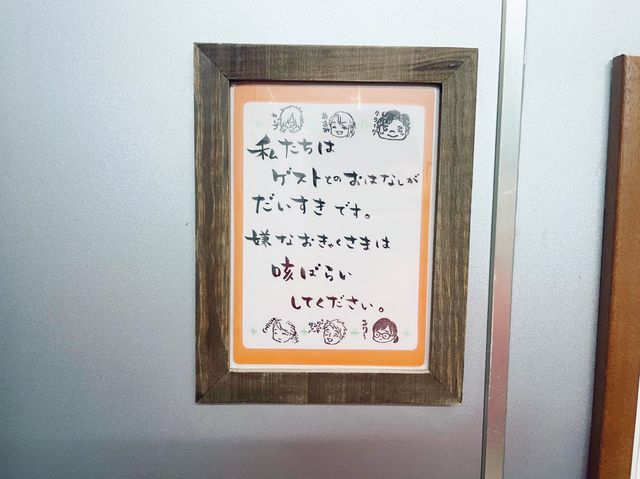 私たちは
ゲストとのおはなしが
だいすきです。
嫌なおきゃくさまは
咳ばらい
してください。